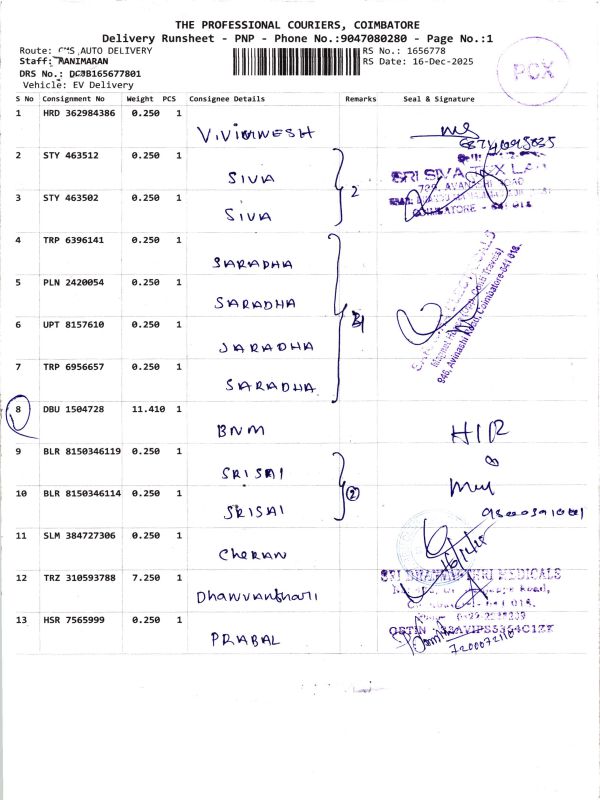 THE PROFESSIONAL COURIERS, COIMBATORE
Delivery Runsheet - PNP - Phone No.:9047080280 - Page No.:1
Route: CMS AUTO DELIVERY
RS No.: 1656778
Staff: MANIMARAN
RS Date: 16-Dec-2025
DRS No.: DCJB165677801
Vehicle: EV Delivery
PCX
S No Consignment No Weight PCS Consignee Details Remarks Seal & Signature
1 HRD 362984386 0.250 1
2 STY 463512 0.250 1 SIVA
2
SRI SIVA TEX
3 STY 463502 0.250 1 SIVA
COIMBATORE
4 TRP 6396141 0.250 1 SARADHA
5 PLN 2420054 0.250 1 SARADHA
6 UPT 8157610 0.250 1 SARADHA
946, Avinashi Road, Coimbatore-641 018.
7 TRP 6956657 0.250 1 SARADHA
8 DBU 1504728 11.410 1 BNM
9 BLR 8150346119 0.250 1 SRISAI
2
10 BLR 8150346114 0.250 1 SRISAI
11 SLM 384727306 0.250 1 CHERAN
16/12/25
12 TRZ 310593788 7.250 1 Dhanvanthari
SRI DHANVANTHRI MEDICALS
Road,
13 HSR 7565999 0.250 1 PRABAL
GSTIN